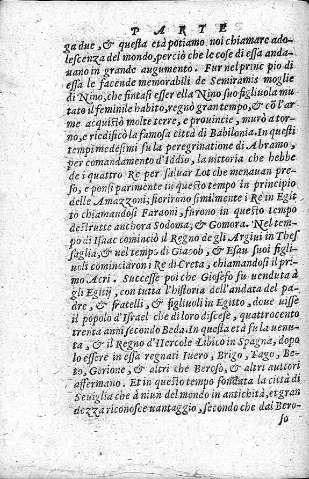 PARTE
ga due, & questa età potiamo noi chiamare ado-
lescenza del mondo, perciò che le cose di essa anda-
uano in grande augumento. Fur nel principio di
essa le facende memorabili de Semiramis moglie
di Nino, che fintasi esser ella Nino suo figliuolo mu-
tato il feminile habito, regnò gran tempo, & cō l'ar
me acquistò molte terre, e prouincie, murò a tor-
no, e riedificò la famosa città di Babilonia. In questi
tempi medesimi fu la peregrinatione di Abramo,
per comandamento d'Iddio, la vittoria che hebbe
de i quattro Re per saluar Lot che menauan pre-
so, e ponsi parimente in questo tempo in principio
delle Amazzoni; fiorirono similmente i Re in Egit
to chiamandosi Faraoni, furono in questo tempo
destrutte anchora Sodoma, & Gomora. Nel tem-
po di Isaac cominciò il Regno de gli Argiui in Thes
saglia, & nel tempo di Giacob, & Esau suoi figli-
uoli cominciarono i Re di Creta, chiamandosi il pri-
mo Acri. Successe poi che Giosefo fu uenduto à
gli Egitij, con tutta l'historia dell'andata del pa-
dre, & fratelli, & figliuoli in Egitto, doue uisse
il popolo d'Israel che di loro discese, quattrocento
trenta anni secondo Beda. In questa età fu la uenu-
ta, & il Regno d'Hercole Libico in Spagna, dopo
lo essere in essa regnati Iuero, Brigo, Tago, Be-
to, Gerione, & altri che Beroso, & altri auttori
affermano. Et in questo tempo fondata la città di
Seuiglia che à niun del mondo in antichità, et gran
dezza riconosce vantaggio, secondo che dal Bero-
so